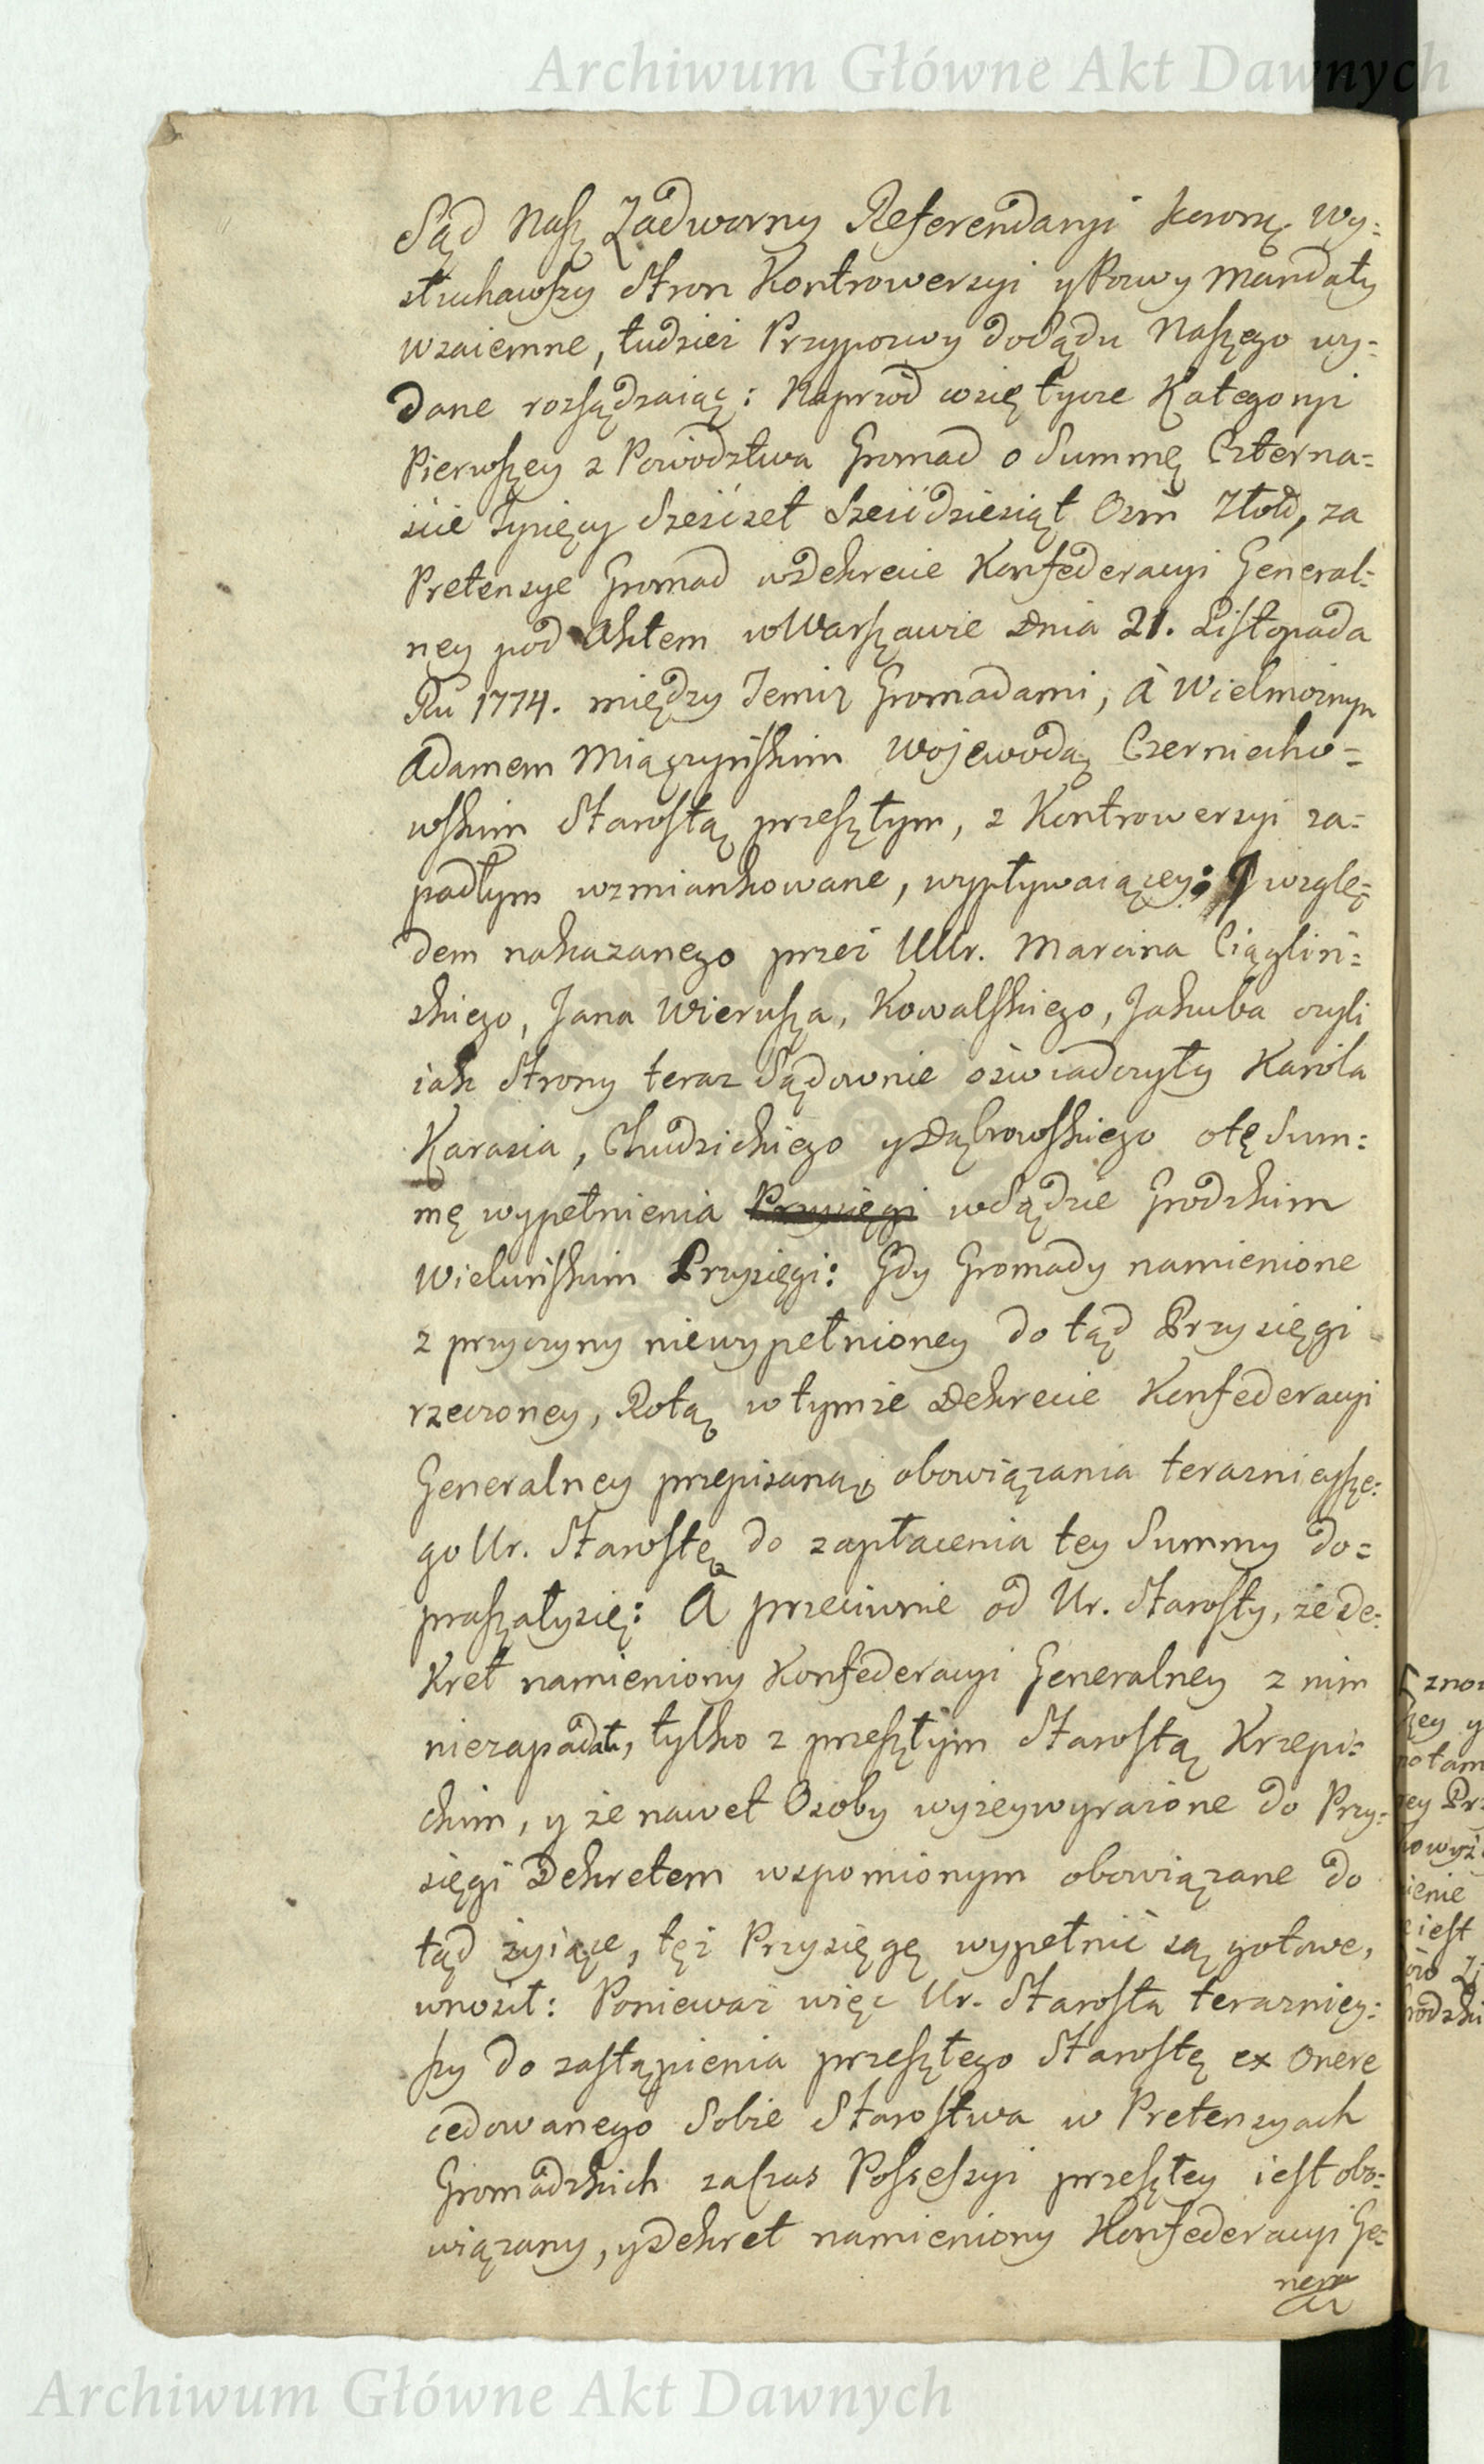 Archiwum Główne Akt Dawnych
Sąd Nasz Zadworny Referendaryi Koronney wy=
słuchawszy Stron Kontrowersyi y Pozwy Mandaty
wzaiemne, tudzież Przypozwy do Sądu Naszego wy=
dane rozsądzaiąc: Naprzód w się tycze Kategoryi
Pierwszey z Powództwa Gromad o Summę Czterna=
ście Tysięcy Sześćset Sześćdziesiąt Ośm Złott, za
Pretensye Gromad w Dekrecie Konfederacyi General=
ney pod Aktem w Warszawie Dnia 21. Listopada
Ru 1774. między Temiż Gromadami, à Wielmożnym
Adamem Miączyńskim Wojewodą Czerniecho=
wskim Starostą przeszłym, z Kontrowersyi za=
padłym wzmiankowane, wypływaiącey: y wzglę=
dem nakazanego przez UUr. Marcina Ciągliń=
skiego, Jana Wierusza, Kowalskiego, Jakuba czyli
iak Strony teraz Sądownie oświadczyły Karola
Karasia, Chudzickiego y Dąbrowskiego o tę Sum=
mę wypełnienia Przysięgi w Sądzie Grodzkim
Wieluńskim Przysięgi: Gdy Gromady namienione
z przyczyny niewypełnioney do tąd Przysięgi
rzeczoney, Rotą w tymże Dekrecie Konfederacyi
Generalney przepisaną, obowiązania teraznieysze=
go Ur. Starostę do zapłacenia tey Summy do=
praszały się: A przeciwnie od Ur. Starosty, że De=
kret namieniony Konfederacyi Generalney z nim
niezapadał, tylko z przeszłym Starostą Krzepi=
ckim, y że nawet Osoby wyżey wyrażone do Przy=
sięgi Dekretem wspomionym obowiązane do
tąd żyiące, tęż Przysięgę wypełnić są gotowe,
wnosił: Ponieważ więc Ur. Starosta teraznie y=
szy do zastąpienia przeszłego Starostę ex onere
cedowanego Sobie Starostwa w Pretensyach
Gromadzkich za czas Possessyi przeszłey iest obo=
wiązany, y Dekret namieniony Konfederacyi Ge=
nera
Archiwum Główne Akt Dawnych